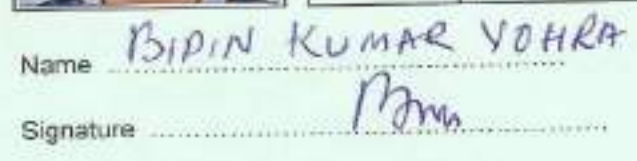 Name BIPIN KUMAR VOHRA
Signature